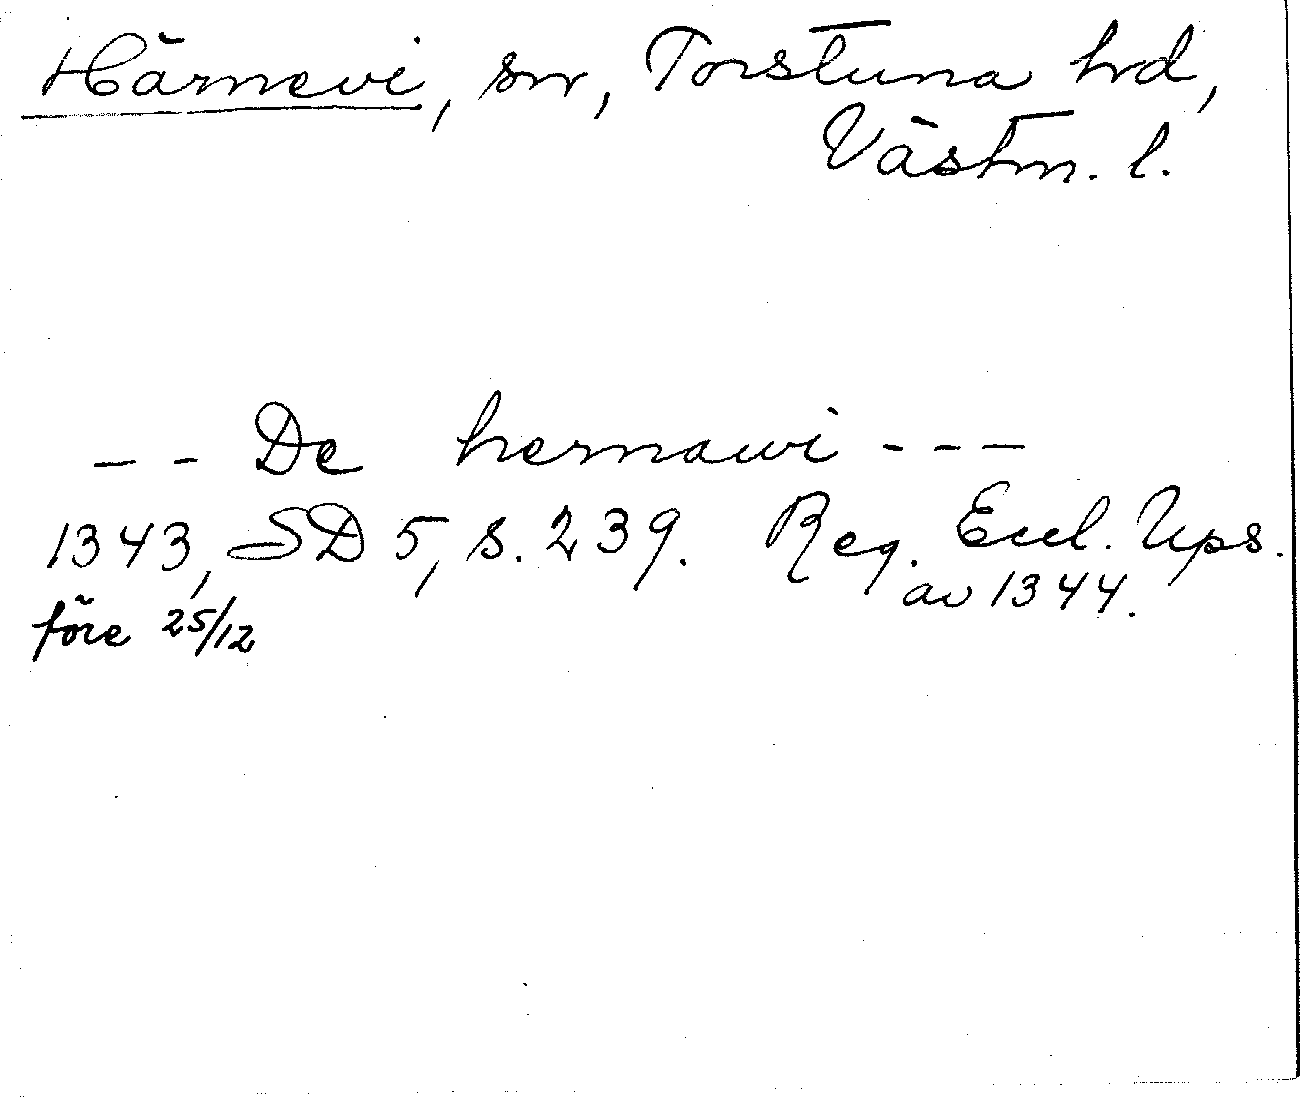 Härnevi, sn, Torstuna hd,
Västm. l.
-- De hernawi ---
1343, SD 5, s. 239. Reg. Eccl. Ups.
av 1344.
före 25/12